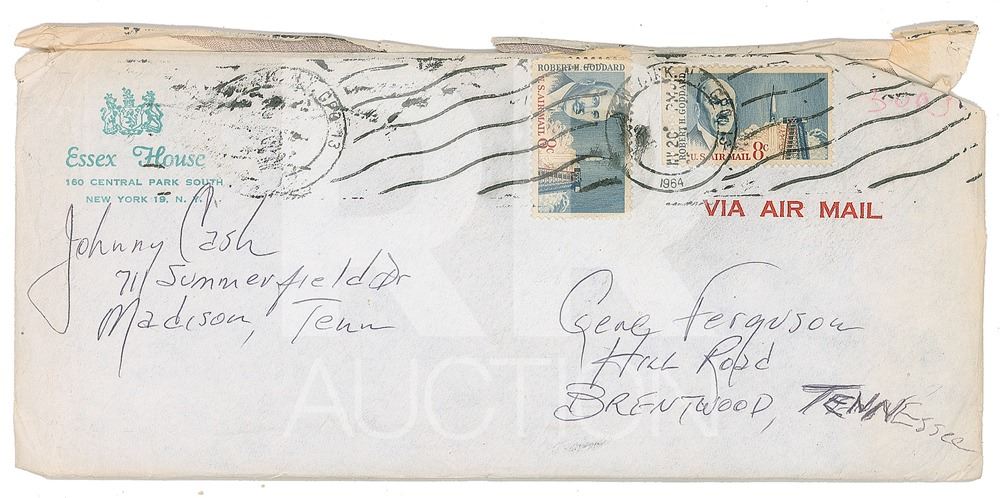 Essex House
160 CENTRAL PARK SOUTH
NEW YORK 19, N. Y.
ROBERT H. GODDARD
U.S. AIR MAIL 8c
ROBERT H. GODDARD
U.S. AIR MAIL 8c
1964
VIA AIR MAIL
Johnny Cash
711 Summerfield Dr
Madison, Tenn
Gene Ferguson
Hill Road
BRENTWOOD, TENNEssee
RR
AUCTION